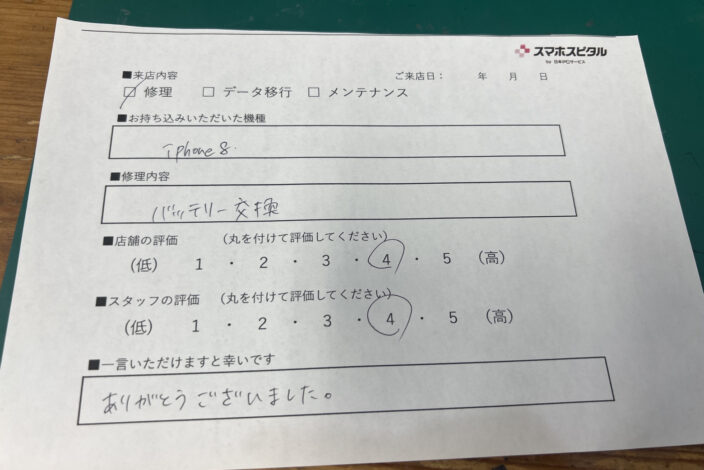 スマホスピタル
by 日本PCサービス
■来店内容 ご来店日： 年 月 日
□ 修理 □ データ移行 □ メンテナンス
■お持ち込みいただいた機種
iphone8.
■修理内容
バッテリー交換
■店舗の評価 （丸を付けて評価してください）
（低） 1 ・ 2 ・ 3 ・ 4 ・ 5 （高）
■スタッフの評価 （丸を付けて評価してください）
（低） 1 ・ 2 ・ 3 ・ 4 ・ 5 （高）
■一言いただけますと幸いです
ありがとうございました。